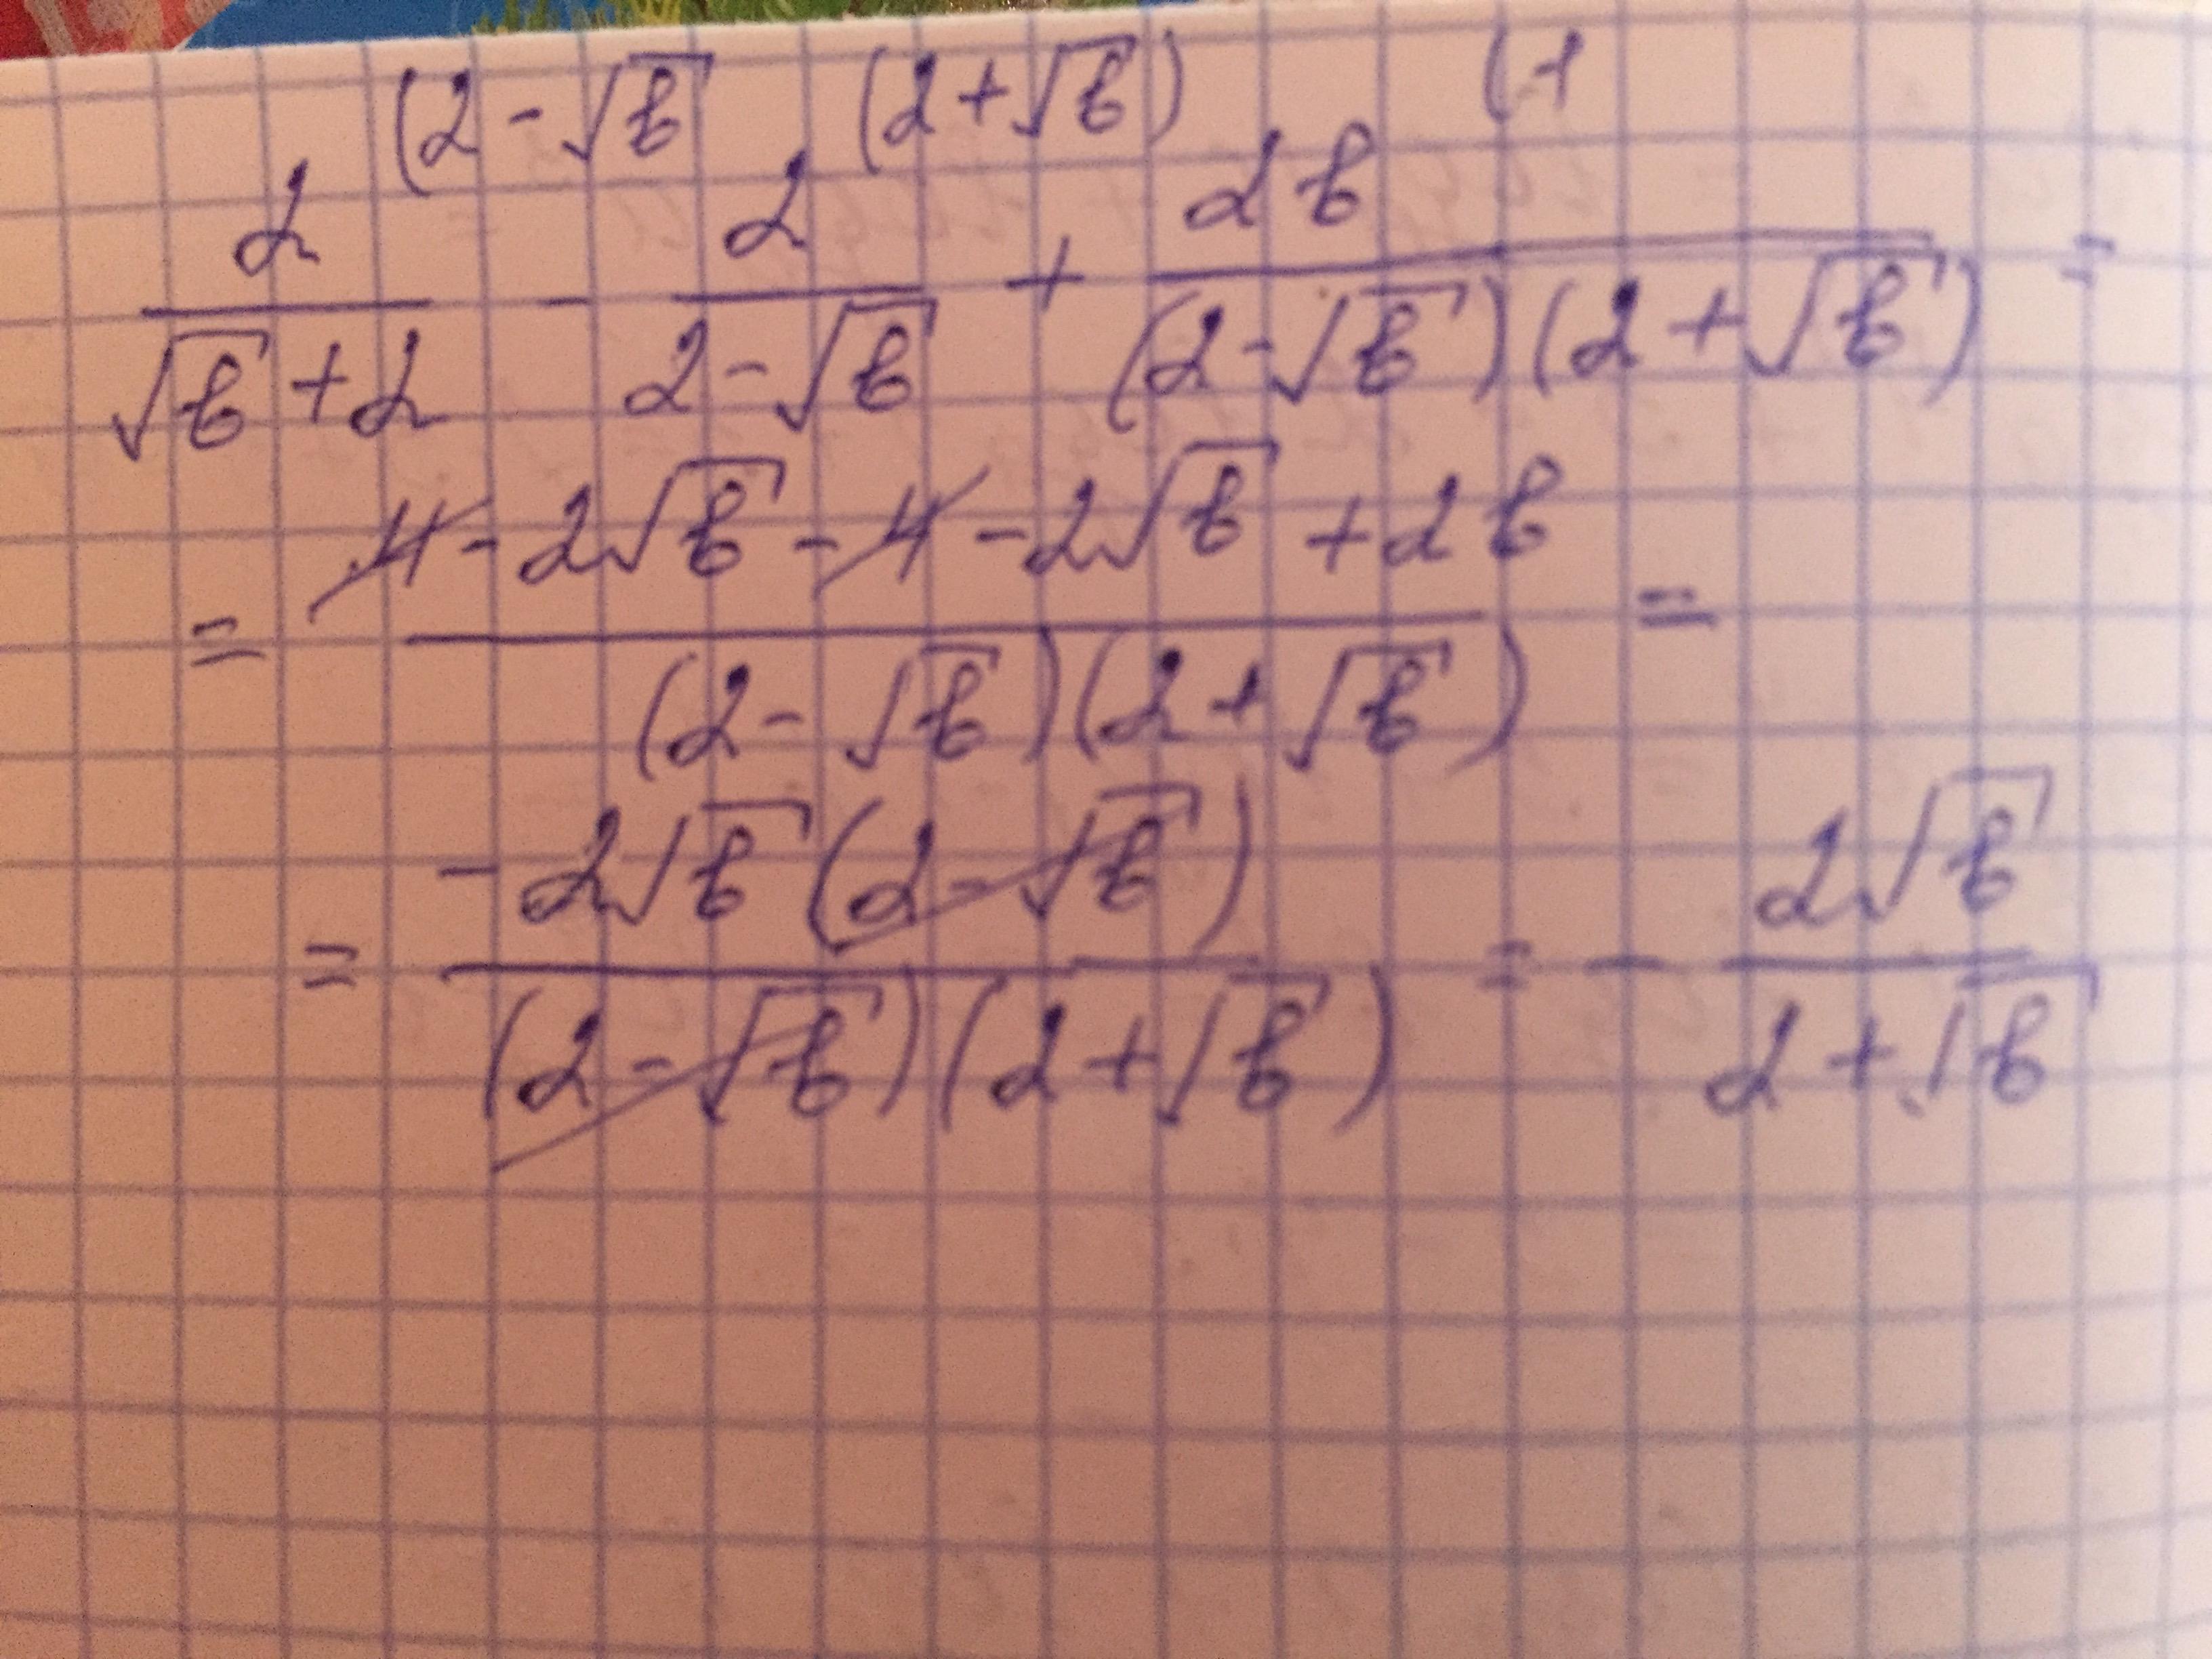 2 (2-√b 2 (2+√b) 2b (1
√b+2 - 2-√b + (2-√b)(2+√b) =
= 4-2√b-4-2√b+2b =
(2-√b)(2+√b)
= -2√b(2-√b) = - 2√b
(2-√b)(2+√b) 2+√b